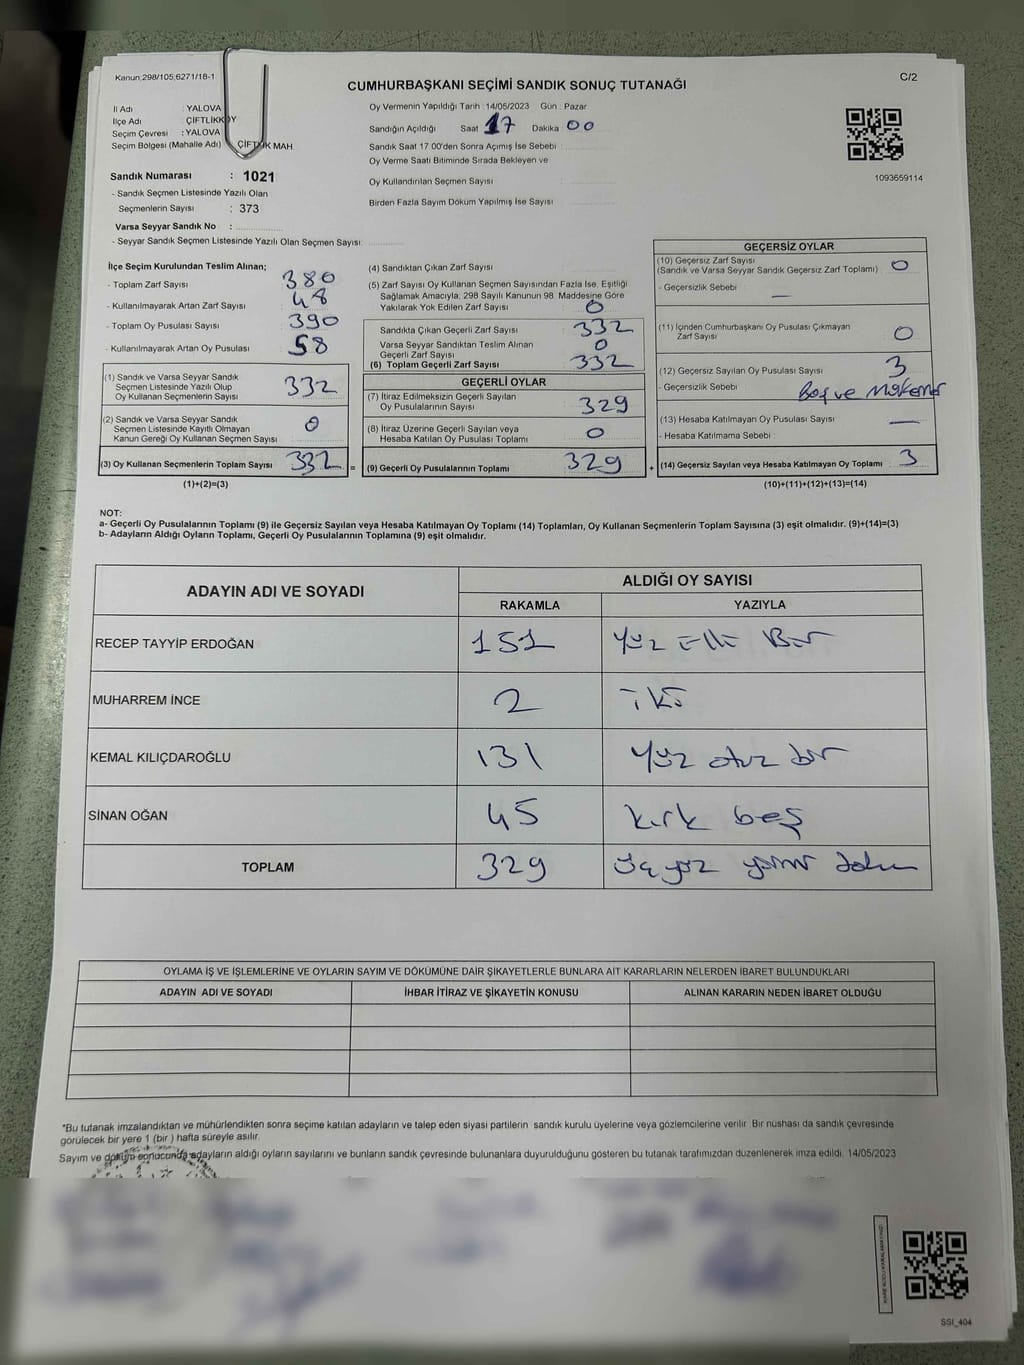 Kanun:298/105,6271/18-1
C/2
CUMHURBAŞKANI SEÇİMİ SANDIK SONUÇ TUTANAĞI
İl Adı : YALOVA
İlçe Adı : ÇİFTLİKKÖY
Seçim Çevresi : YALOVA
Seçim Bölgesi (Mahalle Adı) ÇİFTLİK MAH
Oy Vermenin Yapıldığı Tarih : 14/05/2023 Gün : Pazar
Sandığın Açıldığı Saat 17 Dakika 00
Sandık Saat 17:00'den Sonra Açımış İse Sebebi :
Oy Verme Saati Bitiminde Sırada Bekleyen ve
Oy Kullandırılan Seçmen Sayısı :
Birden Fazla Sayım Döküm Yapılmış İse Sayısı
1093659114
Sandık Numarası : 1021
- Sandık Seçmen Listesinde Yazılı Olan
Seçmenlerin Sayısı : 373
Varsa Seyyar Sandık No :
- Seyyar Sandık Seçmen Listesinde Yazılı Olan Seçmen Sayısı:
İlçe Seçim Kurulundan Teslim Alınan;
- Toplam Zarf Sayısı 380
- Kullanılmayarak Artan Zarf Sayısı 48
- Toplam Oy Pusulası Sayısı 390
- Kullanılmayarak Artan Oy Pusulası 58
(1) Sandık ve Varsa Seyyar Sandık
Seçmen Listesinde Yazılı Olup
Oy Kullanan Seçmenlerin Sayısı 332
(2) Sandık ve Varsa Seyyar Sandık
Seçmen Listesinde Kayıtlı Olmayan
Kanun Gereği Oy Kullanan Seçmen Sayısı 0
(3) Oy Kullanan Seçmenlerin Toplam Sayısı 332 =
(1)+(2)=(3)
(4) Sandıktan Çıkan Zarf Sayısı
(5) Zarf Sayısı Oy Kullanan Seçmen Sayısından Fazla İse, Eşitliği
Sağlamak Amacıyla, 298 Sayılı Kanunun 98. Maddesine Göre
Yakılarak Yok Edilen Zarf Sayısı 0
Sandıkta Çıkan Geçerli Zarf Sayısı 332
Varsa Seyyar Sandıktan Teslim Alınan
Geçerli Zarf Sayısı 0
(6) Toplam Geçerli Zarf Sayısı 332
GEÇERLİ OYLAR
(7) İtiraz Edilmeksizin Geçerli Sayılan
Oy Pusulalarının Sayısı 329
(8) İtiraz Üzerine Geçerli Sayılan veya
Hesaba Katılan Oy Pusulası Toplamı 0
(9) Geçerli Oy Pusulalarının Toplamı 329 +
GEÇERSİZ OYLAR
(10) Geçersiz Zarf Sayısı
(Sandık ve Varsa Seyyar Sandık Geçersiz Zarf Toplamı) 0
- Geçersizlik Sebebi : —
(11) İçinden Cumhurbaşkanı Oy Pusulası Çıkmayan
Zarf Sayısı 0
(12) Geçersiz Sayılan Oy Pusulası Sayısı 3
- Geçersizlik Sebebi : Boş ve
(13) Hesaba Katılmayan Oy Pusulası Sayısı —
- Hesaba Katılmama Sebebi :
(14) Geçersiz Sayılan veya Hesaba Katılmayan Oy Toplamı 3
(10)+(11)+(12)+(13)=(14)
NOT:
a- Geçerli Oy Pusulalarının Toplamı (9) ile Geçersiz Sayılan veya Hesaba Katılmayan Oy Toplamı (14) Toplamları, Oy Kullanan Seçmenlerin Toplam Sayısına (3) eşit olmalıdır. (9)+(14)=(3)
b- Adayların Aldığı Oyların Toplamı, Geçerli Oy Pusulalarının Toplamına (9) eşit olmalıdır.
ADAYIN ADI VE SOYADI ALDIĞI OY SAYISI
RAKAMLA YAZIYLA
RECEP TAYYİP ERDOĞAN 151 Yüz Elli Bir
MUHARREM İNCE 2 iki
KEMAL KILIÇDAROĞLU 131 Yüz otuz bir
SİNAN OĞAN 45 kırk beş
TOPLAM 329 üç yüz yirmi dokuz
OYLAMA İŞ VE İŞLEMLERİNE VE OYLARIN SAYIM VE DÖKÜMÜNE DAİR ŞİKAYETLERLE BUNLARA AİT KARARLARIN NELERDEN İBARET BULUNDUKLARI
ADAYIN ADI VE SOYADI İHBAR İTİRAZ VE ŞİKAYETİN KONUSU ALINAN KARARIN NEDEN İBARET OLDUĞU
*Bu tutanak imzalandıktan ve mühürlendikten sonra seçime katılan adayların ve talep eden siyasi partilerin sandık kurulu üyelerine veya gözlemcilerine verilir. Bir nüshası da sandık çevresinde
görülecek bir yere 1 (bir ) hafta süreyle asılır.
Sayım ve döküm sonucunda adayların aldığı oyların sayılarını ve bunların sandık çevresinde bulunanlara duyurulduğunu gösteren bu tutanak tarafımızdan düzenlenerek imza edildi. 14/05/2023
SSI_404